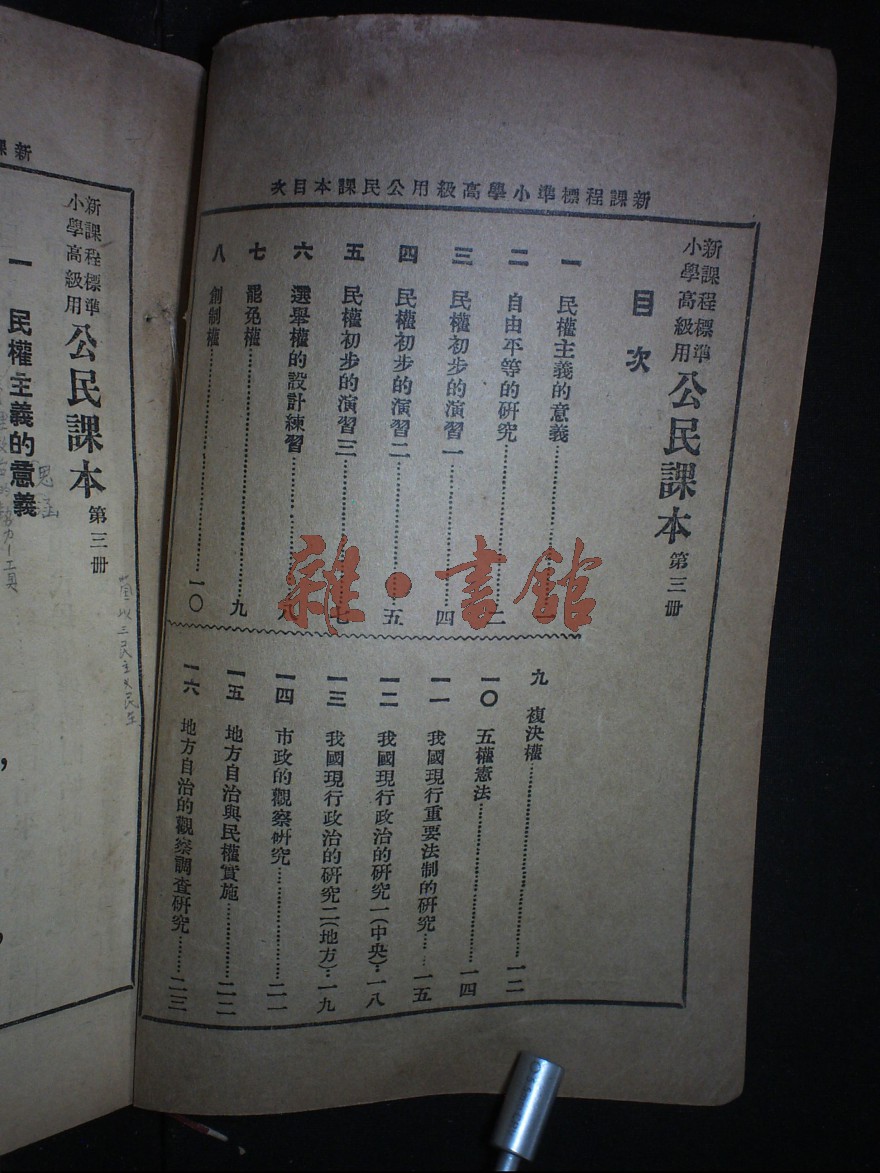 新課程標準小學高級用公民課本目次
新課程標準
小學高級用
公民課本 第三冊
目次
一 民權主義的意義……
二 自由平等的研究……二
三 民權初步的演習一……四
四 民權初步的演習二……五
五 民權初步的演習三……七
六 選舉權的設計練習……
七 罷免權……九
八 創制權……一〇
九 複決權……一二
一〇 五權憲法……一四
一一 我國現行重要法制的研究……一五
一二 我國現行政治的研究一(中央)…一八
一三 我國現行政治的研究二(地方)…一九
一四 市政的觀察研究……二一
一五 地方自治與民權實施……二二
一六 地方自治的觀察調查研究……二三
雜·書館
新課
新課程標準
小學高級用
公民課本 第三冊
一 民權主義的意義